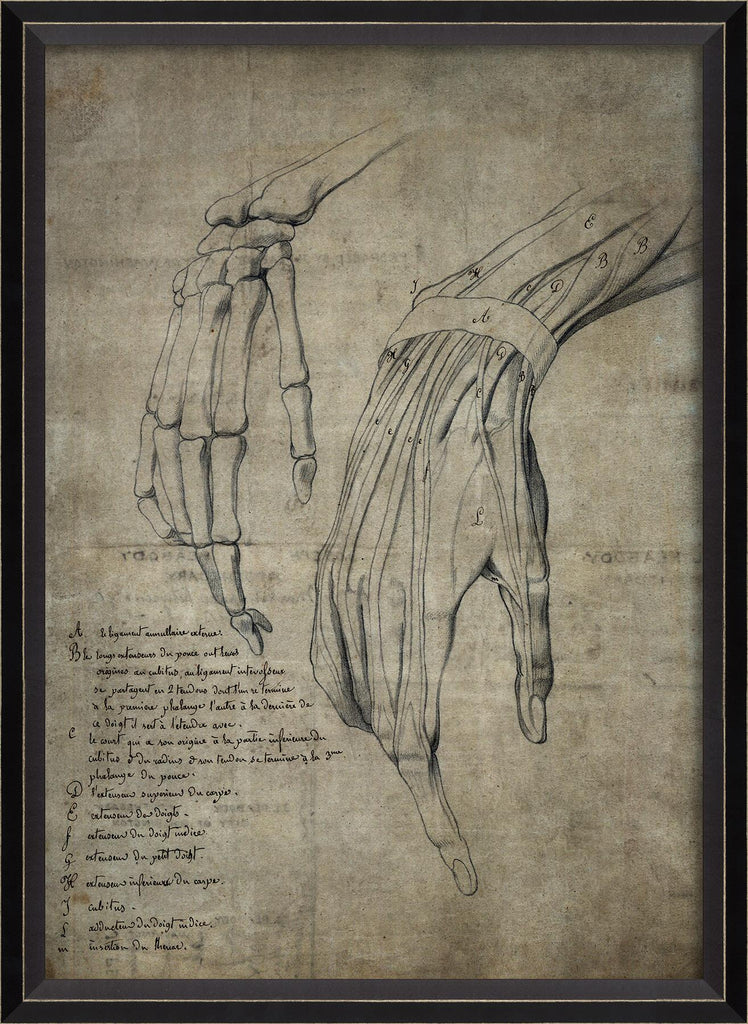 A le ligament annullaire externe.
B les longs extenseurs du pouce ont leurs
origines au cubitus, au ligament interosseux
se partagent en 2 tendons dont l'un se termine
à la premiere phalange l'autre à la derniere de
ce doigt il sert à l'etendre avec.
C le court qui a son origine à la partie inferieure du
cubitus & du radius & son tendon se termine à la 3me
phalange du pouce.
D l'extenseur superieur du carpe.
E extenseur des doigts.
f extenseur du doigt indice.
G extenseur du petit doigt.
H extenseur inferieure du carpe.
J cubitus.
L adducteur du doigt indice.
m insertion du
E
B
B
H
c
D
J
A
H
G
D
C
B
e
e
e
e
f
L
PEABODY